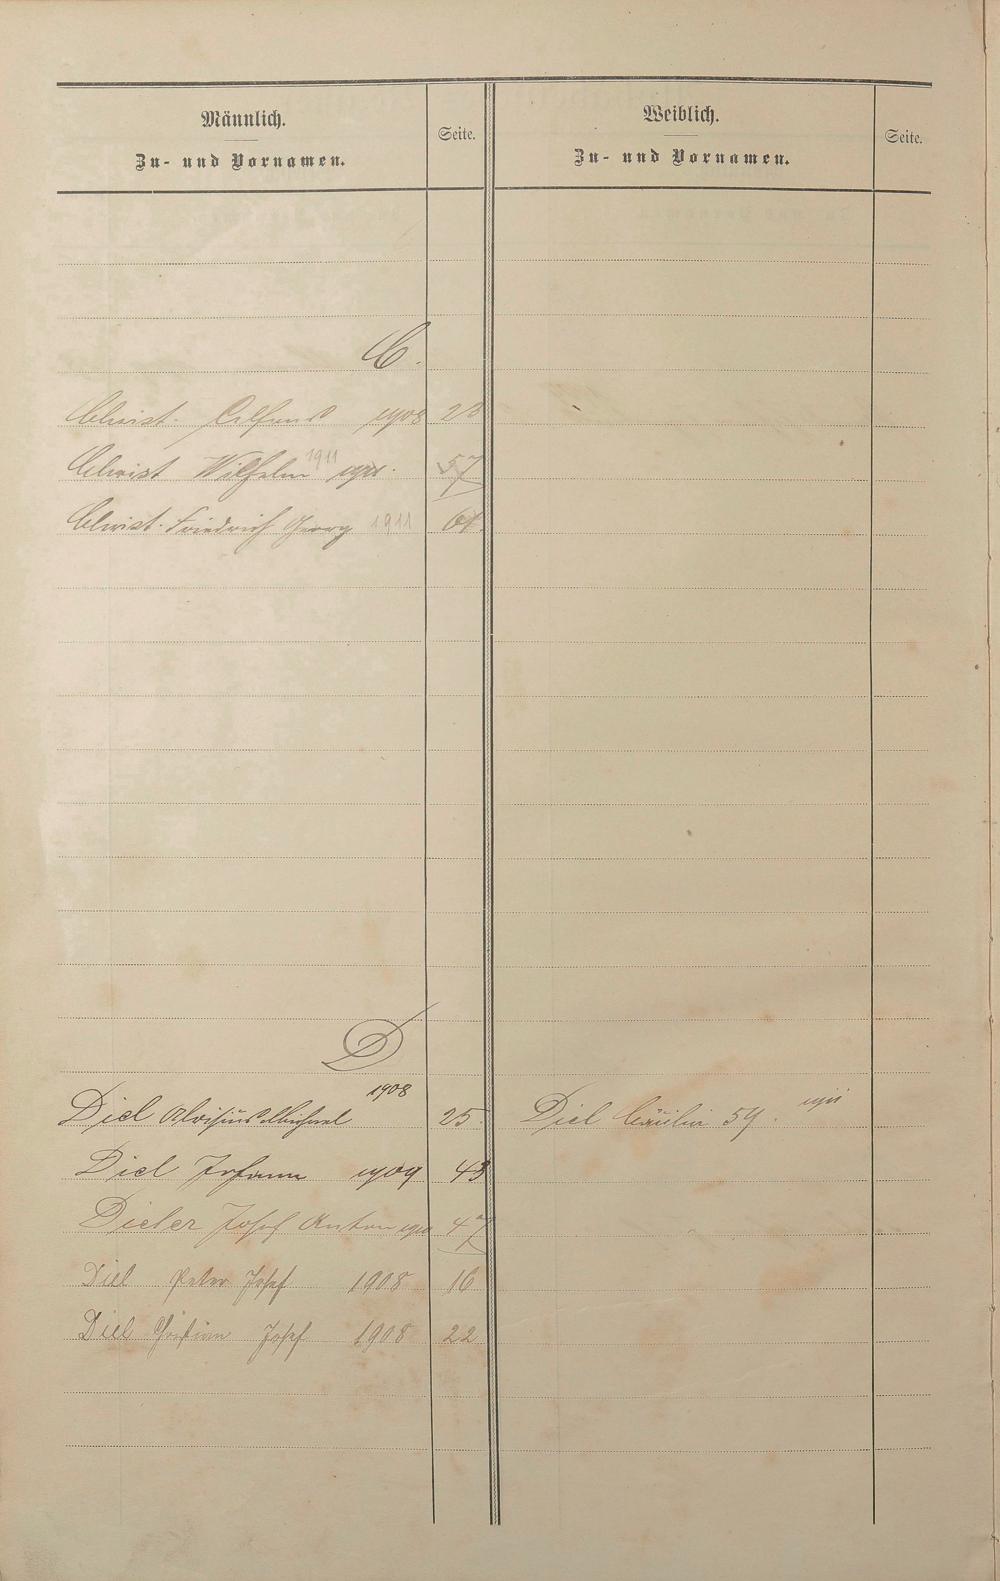 Männlich.
Zu- und Vornamen.
Seite.
Weiblich.
Zu- und Vornamen.
Seite.
C.
Christ. Alfons 1908 23
Christ Wilhelm 1911 1911. 57
Christ. Friedrich Georg 1911 61
D
Diel Aloisius Michael 1908 25.
Diel Cäcilia 59. 1911
Diel Johann 1909 43
Dieler Josef Anton 1910 47
Diel Peter Josef 1908 16
Diel Christian Josef 1908 22